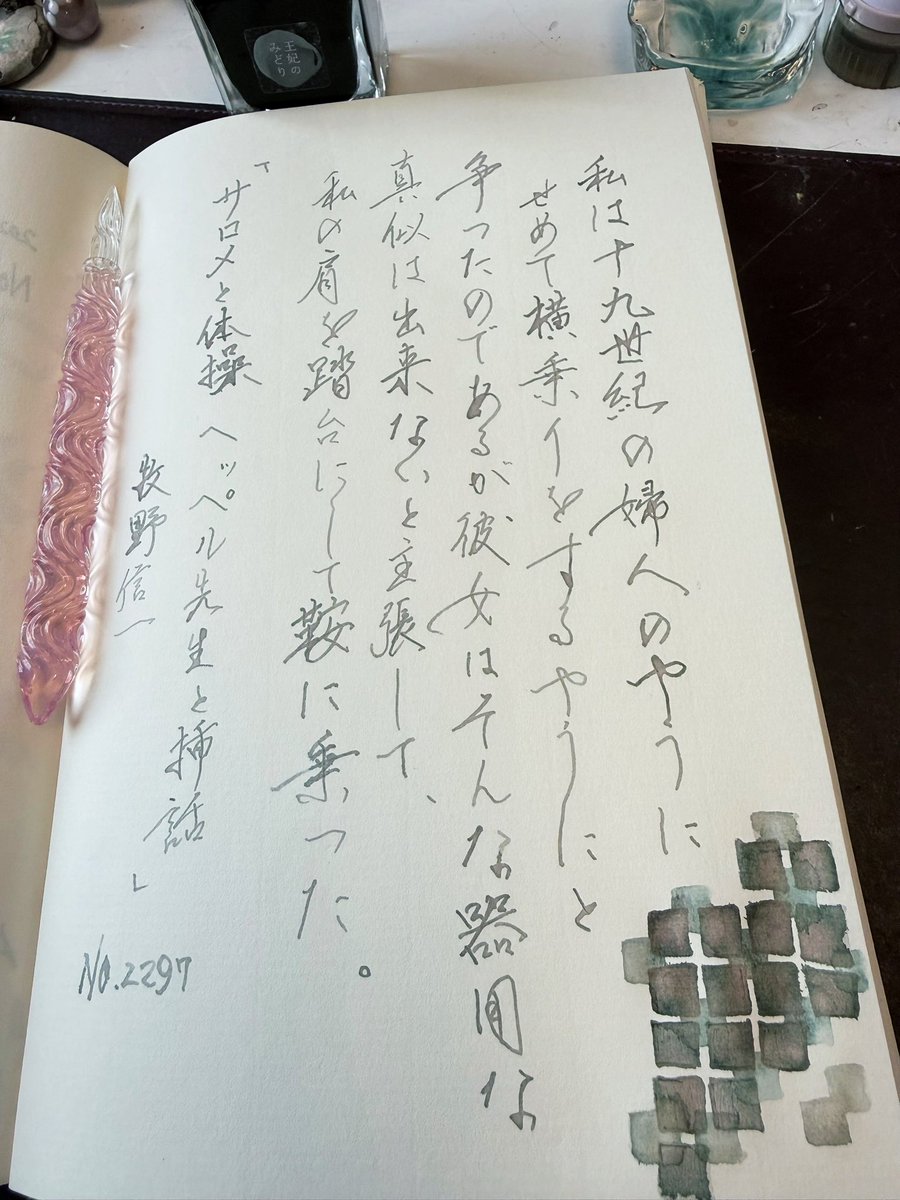 王妃の
みどり
私は十九世紀の婦人のやうに
せめて横乗イをするやうにと
争ったのであるが彼女はそんな器用な
真似は出来ないと主張して、
私の肩を踏台にして鞍に乗った。
「サロメと体操 ヘッペル先生と挿話」
牧野信一
No.2297